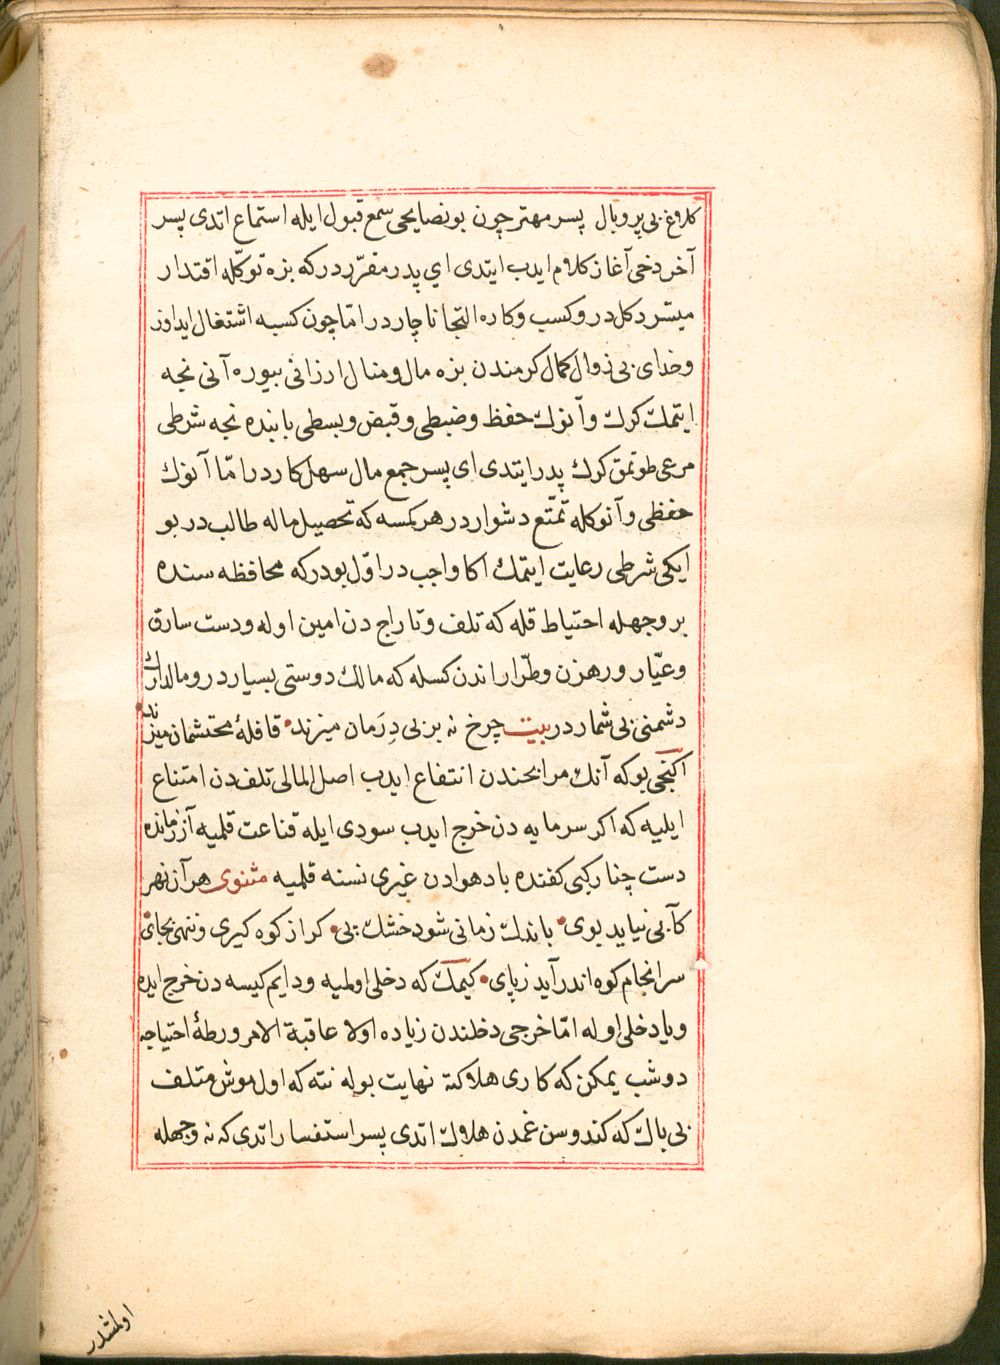 كلاوغ بى پر و بال پسر مهتر چون بو نصايحى سمع قبول ايله استماع اتدى پسر
آخر دخى آغاز كلام ايدب ايتدى اي پدر مقرّر در كه بزه توكّله اقتدار
ميسّر دكل در و كسب و كاره التجا ناچار در امّا چون كسبه اشتغال ايداوز
وخداى بى زوال كمال كرمندن بزه مال و منال ارزانى بيوره آنى نجه
ايتمك كرك و آنوك حفظ و ضبطى و قبض و بسطى بابنده نجه شرطى
مرعى طوتمق كرك پدر ايتدى اى پسر جمع مال سهل كار در امّا آنوك
حفظى و آنوكله تمتّع دشوار در هر كمسه كه تحصيل ماله طالب در بو
ايكى شرطى رعايت ايتمك اكا واجب در اوّل بودر كه محافظه سنده
بر وجهله احتياط قله كه تلف و تاراج دن امين اوله و دست سارق
و عيّار و رهزن و طرّار اندن كسله كه مالك دوستى بسيار در و مالدارك
دشمنى بى شمار در بيت چرخ نه بر بى دِرَمان ميزند قافلهٔ محتشمان ميزند
اكنجى بو كه آنك مرابحندن انتفاع ايدب اصل المالى تلف دن امتناع
ايليه كه اكر سرمايه دن خرج ايدب سودى ايله قناعت قلميه آز زمانده
دست چنار كبى كفنده باد هوادن غيرى نسنه قلميه مثنوى هر آن نهر
كآبى نيايد بوى باندك زمانى شود خشك پى كر از كوه كيرى و ننهى بجاى
سرانجام كوه اندر آيد زپاى كيمك كه دخلى اولميه ودايم كيسه دن خرج ايده
و يا دخلى اوله امّا خرجى دخلندن زياده اولا عاقبة الامر ورطهٔ احتياجه
دوشب يمكن كه كارى هلاكته نهايت بوله نته كه اول موش متلف
بى باك كه كندوسن غمدن هلاك اتدى پسر استفسار اتدى كه نه وجهله
اولمشدر